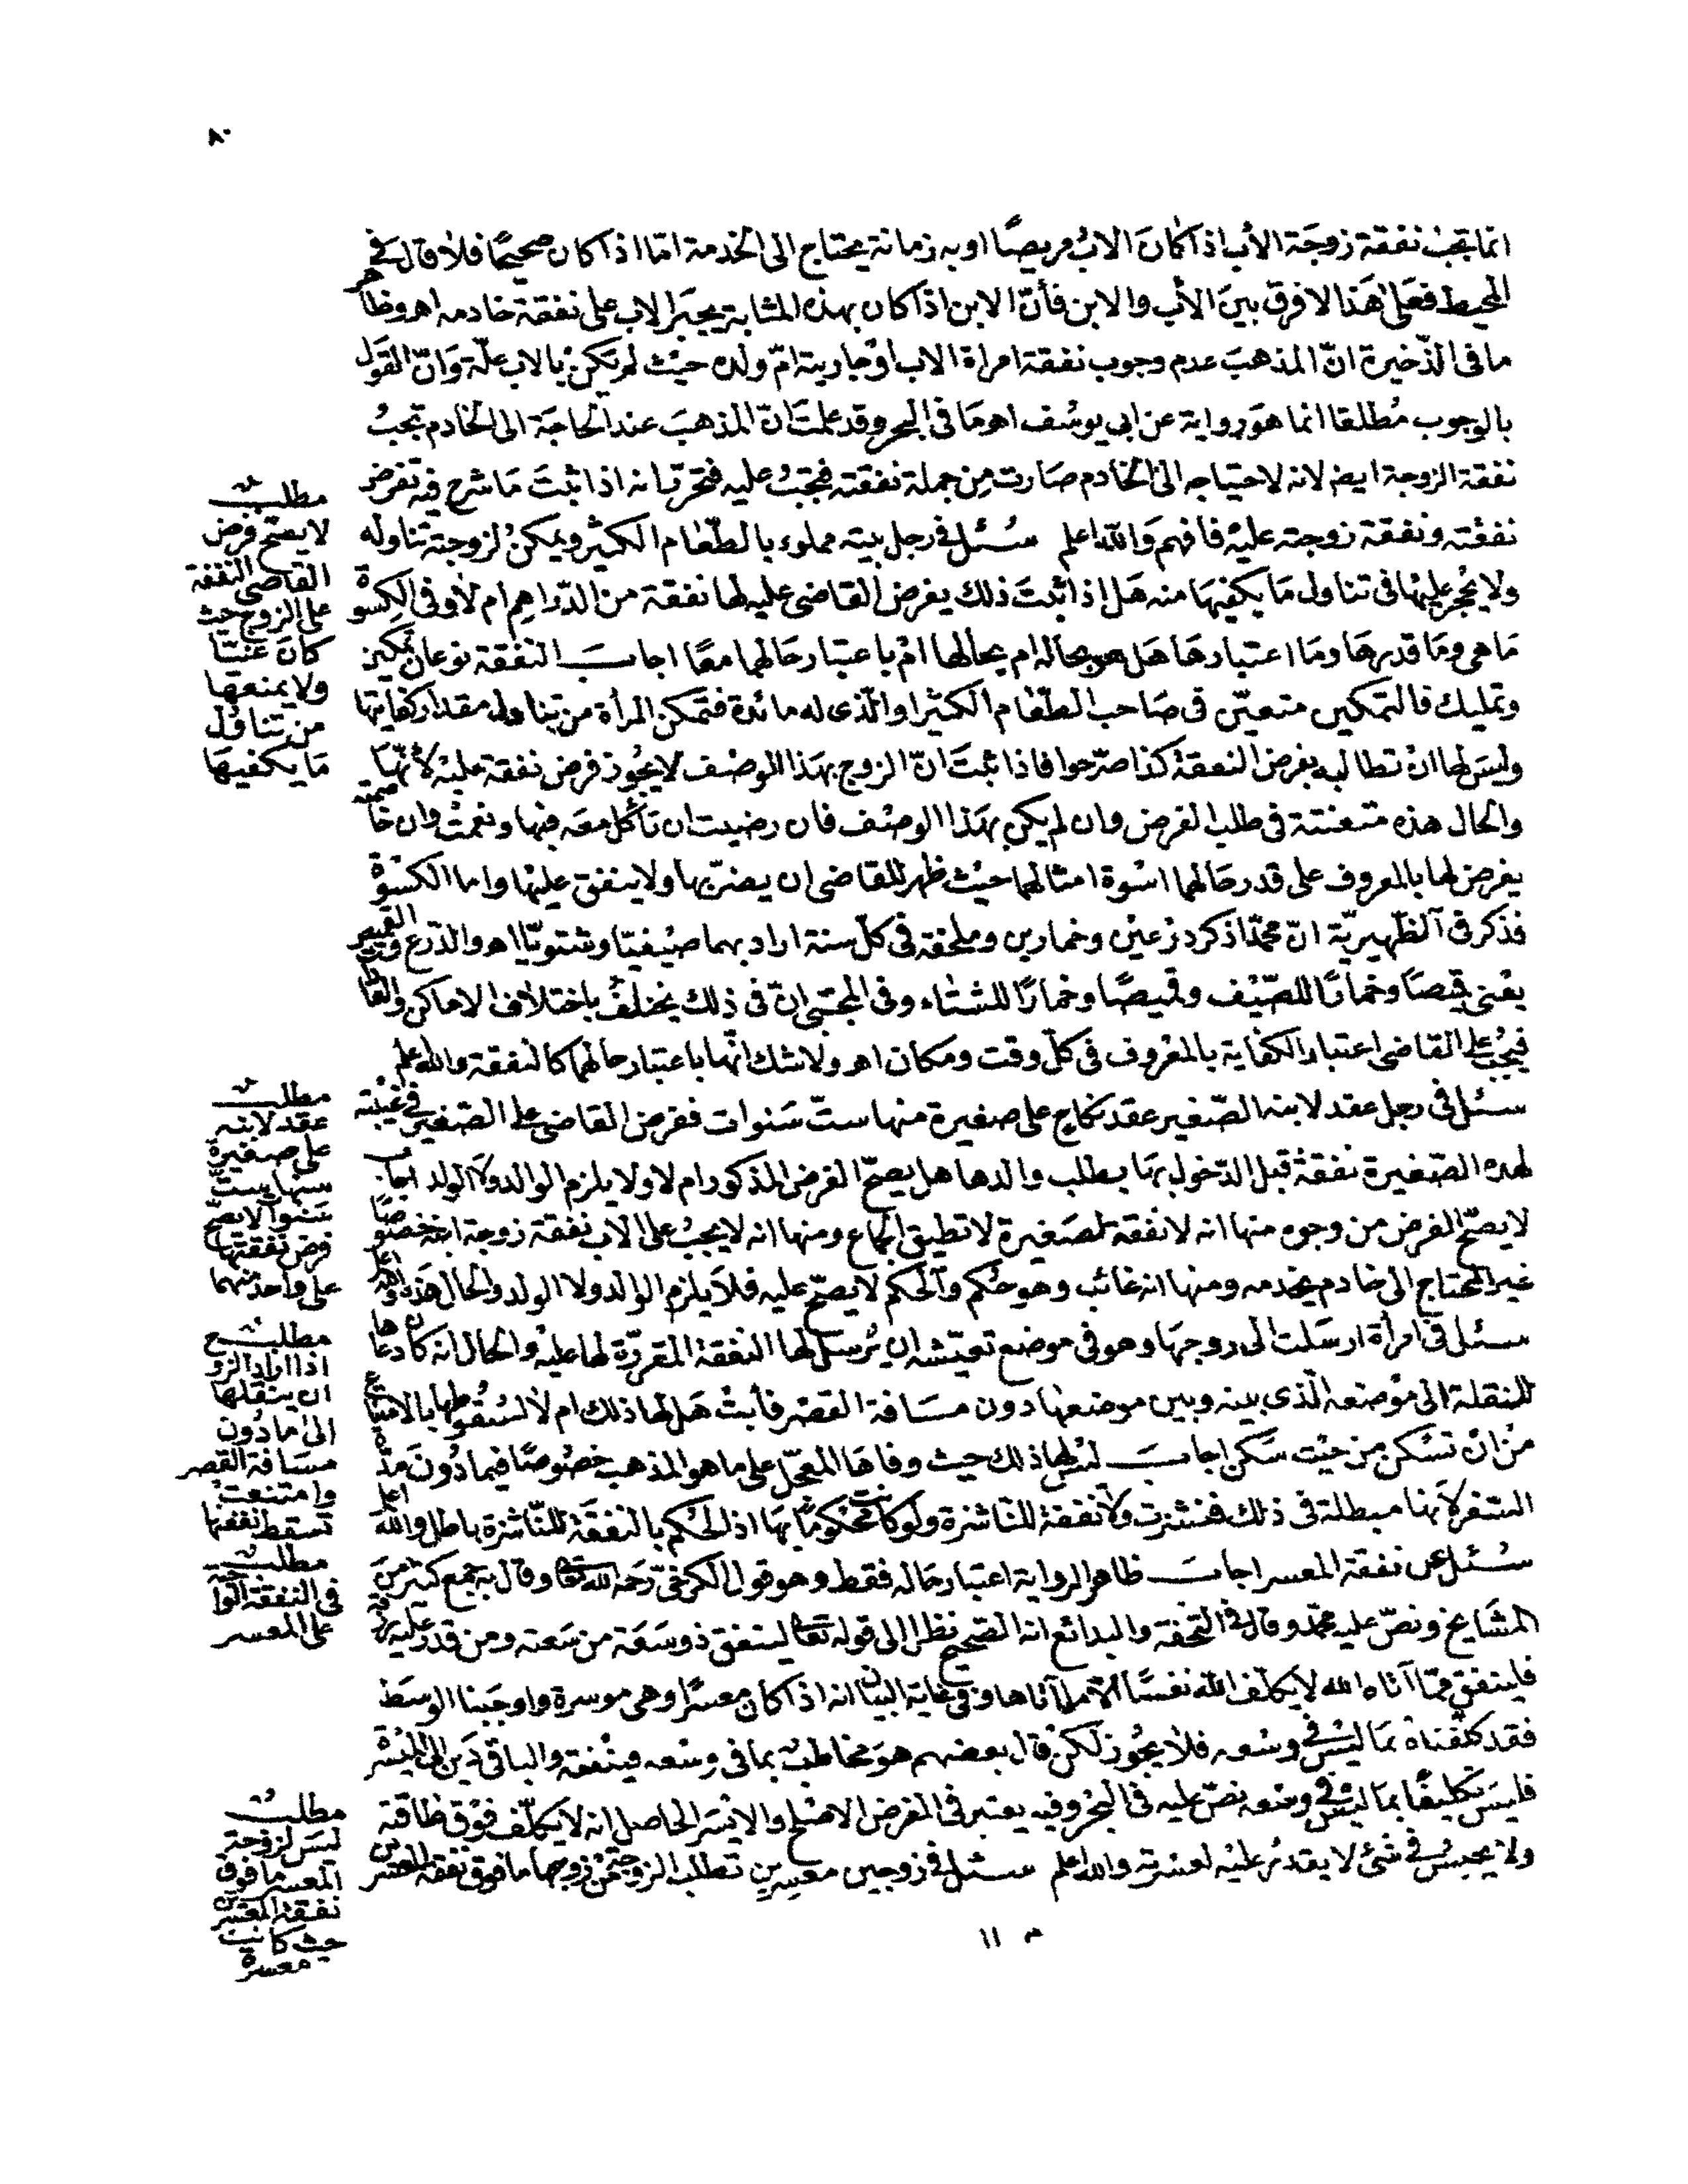 ٨٠
انما تجب نفقة زوجة الأب اذا كان الاب مريضًا او به زمانة يحتاج الى الخدمة امّا اذا كان صحيحًا فلا قال في
المحيط فعلى هذا لا فرق بين الأب والابن فأنّ الابن اذا كان بهذه المثابة يجبر الاب على نفقة خادمه اهـ وظاهر
ما في الذّخيرة انّ المذهب عدم وجوب نفقة امرأة الاب أو جاريته امّ ولده حيث لم يكن بالاب علّة وانّ القول
بالوجوب مطلقا انما هو رواية عن ابي يوسف اهـ وما في البحر وقد علمت انّ المذهب عند الحاجة الى الخادم تجب
نفقة الزوجة ايضا لانه لاحتياجه الى الخادم صارت من جملة نفقته فتجب عليه فتحرّر بانه اذا ثبت ما شرح فيه تفرض
نفقته ونفقة زوجته عليه فافهم والله اعلم سئل في رجل بيته مملوء بالطّعام الكثير ويمكن لزوجته تناوله
ولا يحجر عليها في تناول ما يكفيها منه هل اذا ثبت ذلك يفرض القاضى عليه لها نفقة من الدّراهم ام لا وفى الكسوة
ما هي وما قدرها وما اعتبارها هل هو بحاله ام بحالها ام باعتبار حالهما معًا اجاب النفقة نوعان تمكين
وتمليك فالتمكين متعيّن في صاحب الطّعام الكثير او الّذى له مائدة فتمكن المرأة من تناول مقدار كفايتها
وليس لها ان تطالبه بفرض النفقة كذا صرّحوا فاذا ثبت انّ الزوج بهذا الوصف لا يجوز فرض نفقة عليه لأنّها
والحال هذه متعنتة في طلب الفرض وان لم يكن بهذا الوصف فان رضيت ان تأكل معه فبها ونعمت وان خاصمته
يفرض لها بالمعروف على قدر حالهما اسوة امثالهما حيث ظهر للقاضى ان يضرّبها ولا ينفق عليها واما الكسوة
فذكر في الظّهيريّة انّ محمّدًا ذكر درعين وخمارين وملحفة في كلّ سنة اراد بهما صيفيّا وشتويّا اهـ والدّرع هو القميص
يعنى قميصًا وخمارًا للصّيف وقميصًا وخمارًا للشتاء وفى المجتبى انّ في ذلك يختلف باختلاف الاماكن والعادات
فيجب على القاضى اعتبار الكفاية بالمعروف في كلّ وقت ومكان اهـ ولا شك انّها باعتبار حالهما كالنفقة والله اعلم
سئل في رجل عقد لابنه الصّغير عقد نكاح على صغيرة منها ستّ سنوات ففرض القاضى على الصّغير في غيبته
لهذه الصّغيرة نفقة قبل الدّخول بها بطلب والدها هل يصحّ الفرض المذكور ام لا ولا يلزم الوالد ولا الولد اجاب
لا يصحّ الفرض من وجوه منها انه لا نفقة لصغيرة لا تطيق الجماع ومنها انه لا يجب على الاب نفقة زوجة ابنه خصوصًا
غير المحتاج الى خادم يخدمه ومنها انه غائب وهو حكم والحكم لا يصحّ عليه فلا يلزم الوالد ولا الولد والحال هذه والله اعلم
سئل في امرأة ارسلت الى زوجها وهو في موضع تعيّشه ان يرسل لها النفقة المقرّرة لها عليه والحال انه كان دعاها
للنقلة الى موضعه الّذى بينه وبين موضعها دون مسافة القصر فأبت هل لها ذلك ام لا لسقوطها بالامتناع
من ان تسكن من حيث سكن اجاب ليس لها ذلك حيث وفاها المعجّل على ما هو المذهب خصوصًا فيما دون مدّة
السّفر لأنها مبطلة في ذلك فنشزت ولا نفقة للنّاشزة ولو كانت محكومًا بها اذ الحكم بالنفقة للنّاشزة باطل والله اعلم
سئل عن نفقة المعسر اجاب ظاهر الرواية اعتبار حاله فقط وهو قول الكرخيّ رحمه الله تعالى وقال به جمع كثير من
المشايخ ونصّ عليه محمّد وقال في التحفة والبدائع انه الصّحيح نظرا الى قوله تعالى لينفق ذو سعة من سعته ومن قدر عليه رزقه
فلينفق ممّا آتاه الله لا يكلّف الله نفسًا الّا ما آتاها وفي غاية البيان انه اذا كان معسرًا وهى موسرة واوجبنا الوسط
فقد كلّفناه بما ليس في وسعه فلا يجوز لكن قال بعضهم هو مخاطب بما فى وسعه فينفقه والباقى دين الى الميسر
فليس تكليفًا بما ليس في وسعه نصّ عليه فى البحر وفيه يعتبر فى الفرض الاصلح والايسر الحاصل انه لا يكلّف فوق طاقته
ولا يحبس في شئ لا يقدر عليه لعسرته والله اعلم سئل في زوجين معسرين تطلب الزوجة من زوجها ما فوق نفقة المعسرين
مطلب
لا يصحّ فرض
القاضى النفقة
على الزوج حيث
كان غنيّا
ولا يمنعها
من تناول
ما يكفيها
مطلب
عقد لابنه
على صغيرة
سنها ستّ
سنوات لا يصح
فرض نفقتها
على واحد منهما
مطلب
اذا اراد الزوج
ان ينقلها
الى ما دون
مسافة القصر
وامتنعت
تسقط نفقتها
مطلب
فى النفقة الواجبة
على المعسر
مطلب
ليس لزوجة
المعسر ما فوق
نفقة المعسرين
حيث كانت
معسرة
م ١١